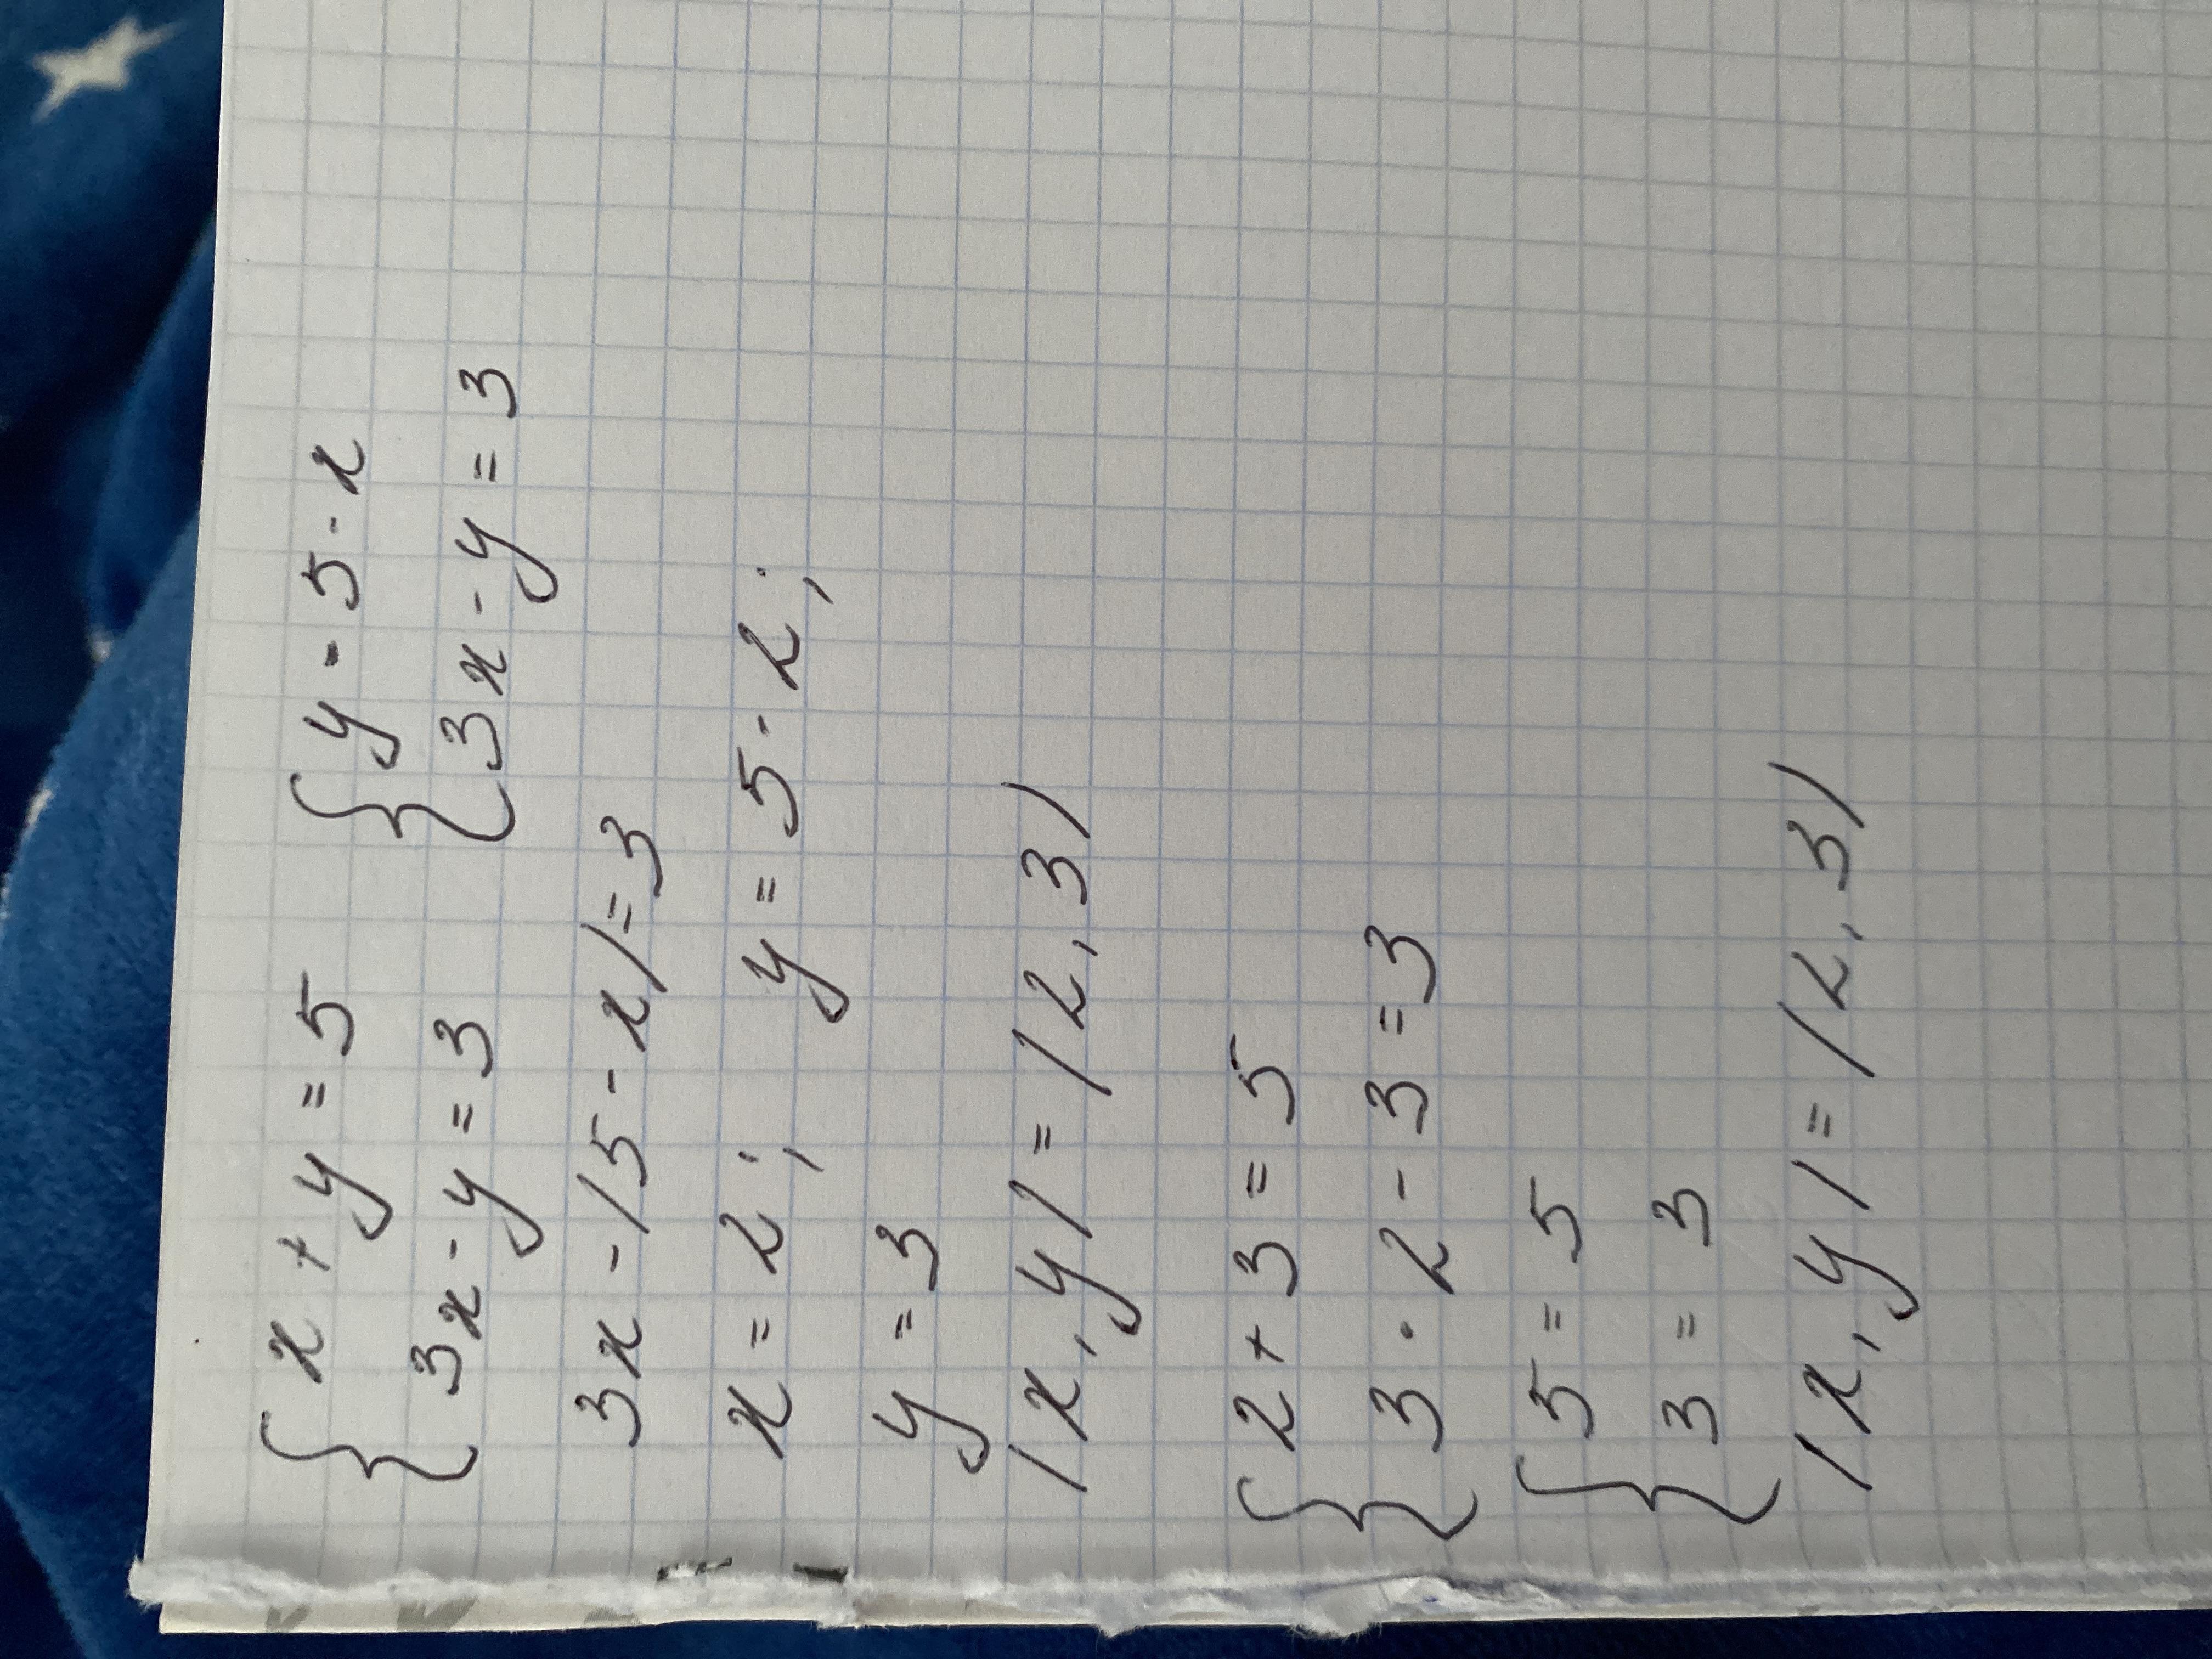 { x + y = 5 { y - 5 - x
3x - y = 3 3x - y = 3
3x - (5 - x) = 3
x = 2; y = 5 - 2;
y = 3
(x, y) = (2, 3)
{ 2 + 3 = 5
3 · 2 - 3 = 3
{ 5 = 5
3 = 3
(x, y) = (2, 3)